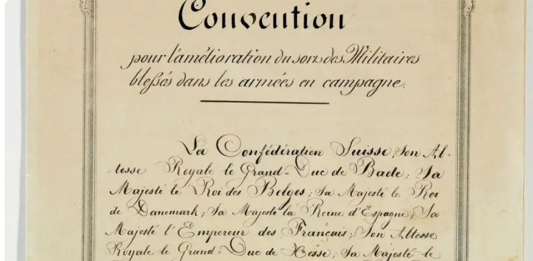 Convention
pour l'amélioration du sort des Militaires
blessés dans les armées en campagne.
La Confédération Suisse; Son Al-
tesse Royale le Grand-Duc de Bade; Sa
Majesté le Roi des Belges; Sa Majesté le Roi
de Danemark; Sa Majesté la Reine d'Espagne; Sa
Majesté l'Empereur des Français; Son Altesse
Royale le Grand-Duc de Hesse; Sa Majesté le